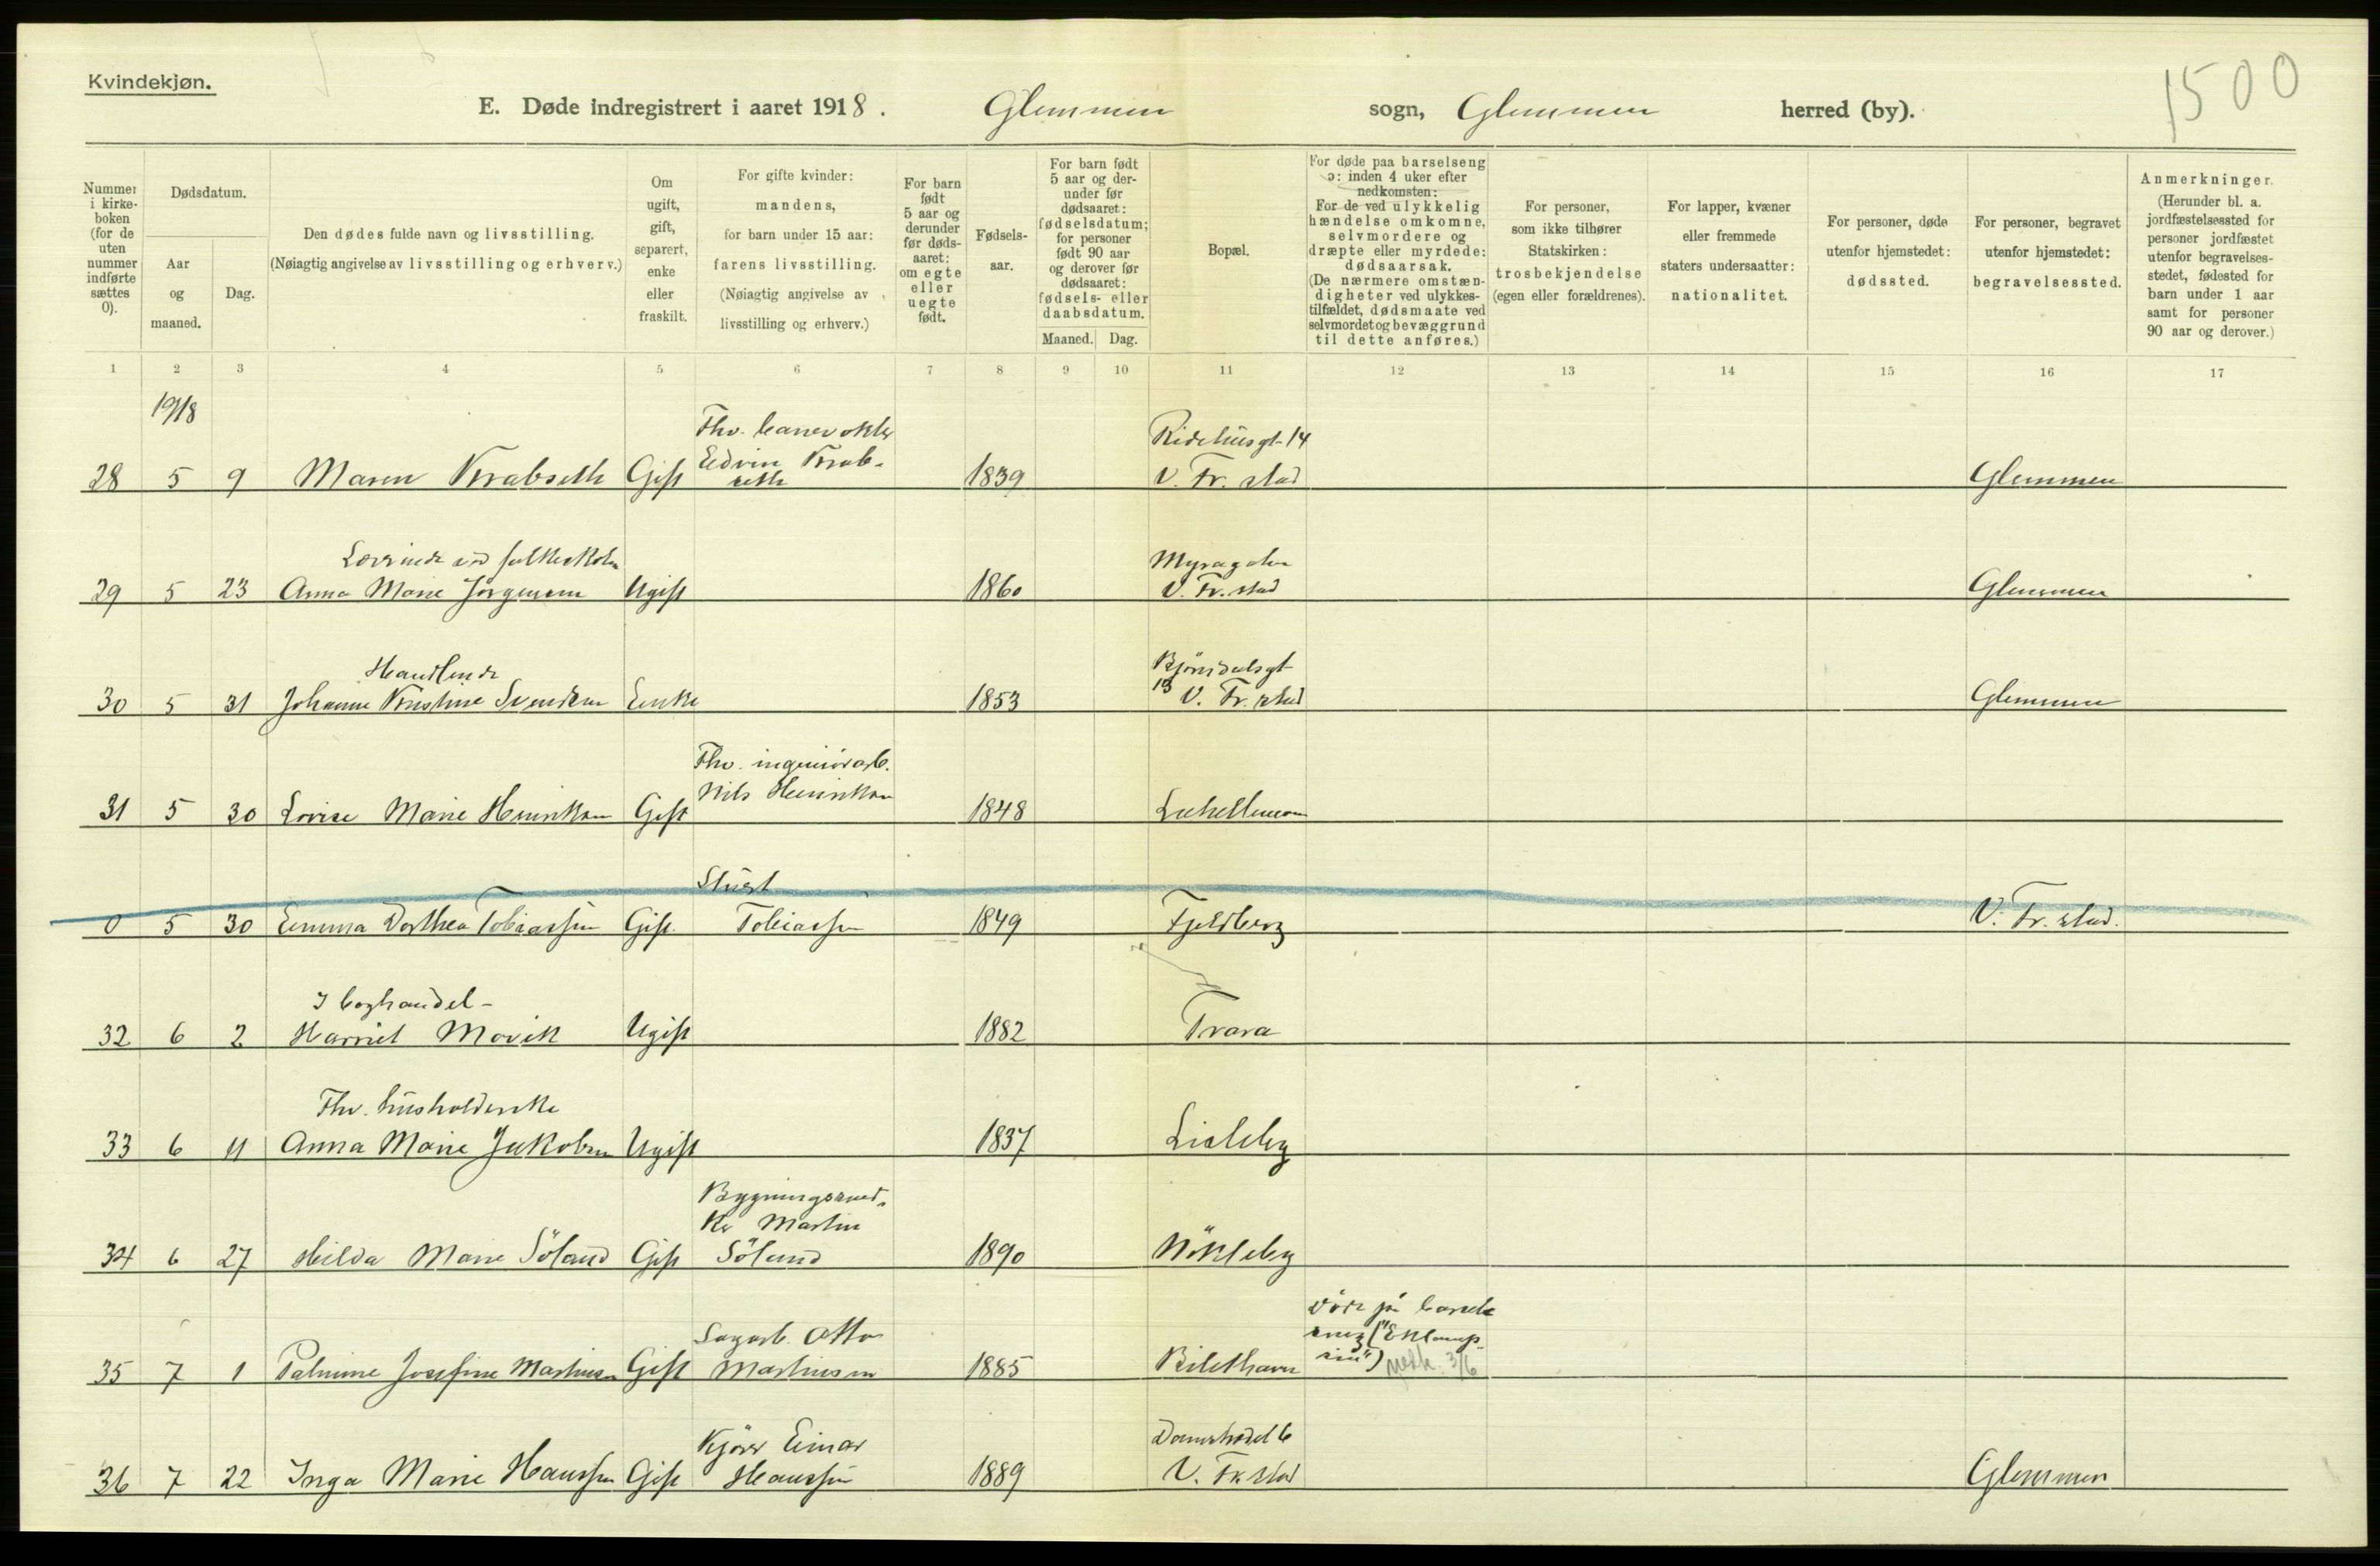 Kvindekjøn.
1500
E. Døde indregistrert i aaret 1918. Glemmen sogn, Glemmen herred (by).
Nummer i kirkeboken (for de uten nummer indførte sættes 0).
Dødsdatum.
Aar og maaned.
Dag.
Den dødes fulde navn og livsstilling.
(Nøiagtig angivelse av livsstilling og erhverv.)
Om ugift, gift, separert, enke eller fraskilt.
For gifte kvinder: mandens, for barn under 15 aar: farens livsstilling.
(Nøiagtig angivelse av livsstilling og erhverv.)
For barn født 5 aar og derunder før dødsaaret: om egte eller uegte født.
Fødselsaar.
For barn født 5 aar og derunder før dødsaaret: fødselsdatum; for personer født 90 aar og derover før dødsaaret: fødsels- eller daabsdatum.
Maaned. Dag.
Bopæl.
For døde paa barselseng ɔ: inden 4 uker efter nedkomsten:
For de ved ulykkelig hændelse omkomne, selvmordere og dræpte eller myrdede: dødsaarsak.
(De nærmere omstændigheter ved ulykkestilfældet, dødsmaate ved selvmordet og bevæggrund til dette anføres.)
For personer, som ikke tilhører Statskirken: trosbekjendelse (egen eller forældrenes).
For lapper, kvæner eller fremmede staters undersaatter: nationalitet.
For personer, døde utenfor hjemstedet: dødssted.
For personer, begravet utenfor hjemstedet: begravelsessted.
Anmerkninger.
(Herunder bl. a. jordfæstelsessted for personer jordfæstet utenfor begravelsesstedet, fødested for barn under 1 aar samt for personer 90 aar og derover.)
1 2 3 4 5 6 7 8 9 10 11 12 13 14 15 16 17
1918
Fhv. Ridehusgt. 14
28 5 9 Maren Krabseth Gift Edvin Krabseth 1839 V. Fr. stad Glemmen
Lærerinde ved folkeskolen
29 5 23 Anna Marie Jørgensen Ugift 1860 V. Fr. stad Glemmen
Handlende Bjørndalsgt
30 5 31 Johanne Kristine Svendsen Enke 1853 13 V. Fr. stad Glemmen
Fhv. ingeniørarb.
31 5 30 Lovise Marie Henriksen Gift Nils Henriksen 1848
0 5 30 Emma Dorthea Tobiassen Gift. Tobiassen 1849 Fjeldberg V. Fr. stad.
I boghandel -
32 6 2 Harriet Movik Ugift 1882 Trara
Fhv. husholderske
33 6 11 Anna Marie Jakobsen Ugift 1837 Lisleby
Bygningssned-
ker Martin
34 6 27 Hilda Marie Söland Gift Söland 1890 Nökleby
Döde på barsel-
Sagarb. Otto seng ("Eklamp-
35 7 1 Palmine Josefine Martinsen Gift Martinsen 1885 sin") nedk. 3/6
Kjörer Einar
36 7 22 Inga Marie Hanssen Gift Hanssen 1889 V. Fr. stad Glemmen